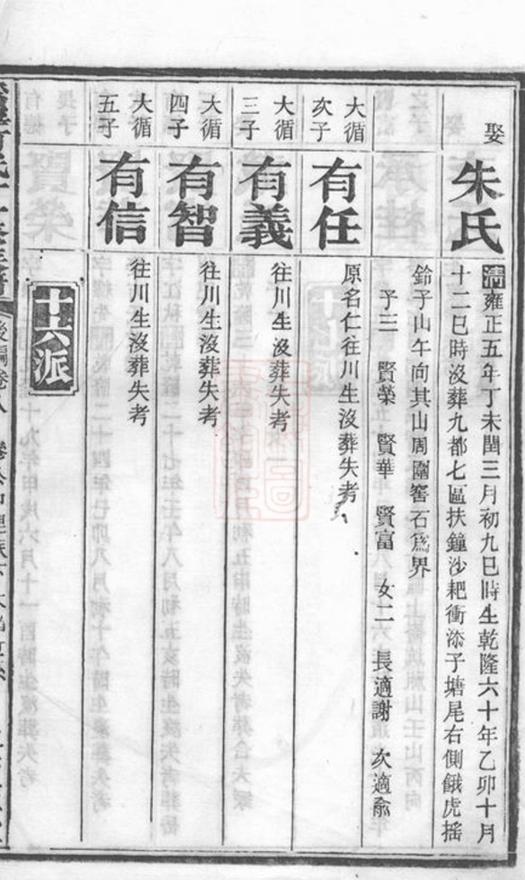 娶
朱氏
清雍正五年丁未閏三月初九巳時生乾隆六十年乙卯十月
十二巳時沒葬九都七區扶鐘沙耙衝漆子塘尾右側餓虎搖
鈴子山午向其山周圍窖石爲界
子三 賢榮 賢華 賢富 女二 長適謝 次適俞
大循
次子
有任
原名仁往川生沒葬失考
大循
三子
有義
往川生沒葬失考
大循
四子
有智
往川生沒葬失考
大循
五子
有信
往川生沒葬失考
十六派
後編卷八